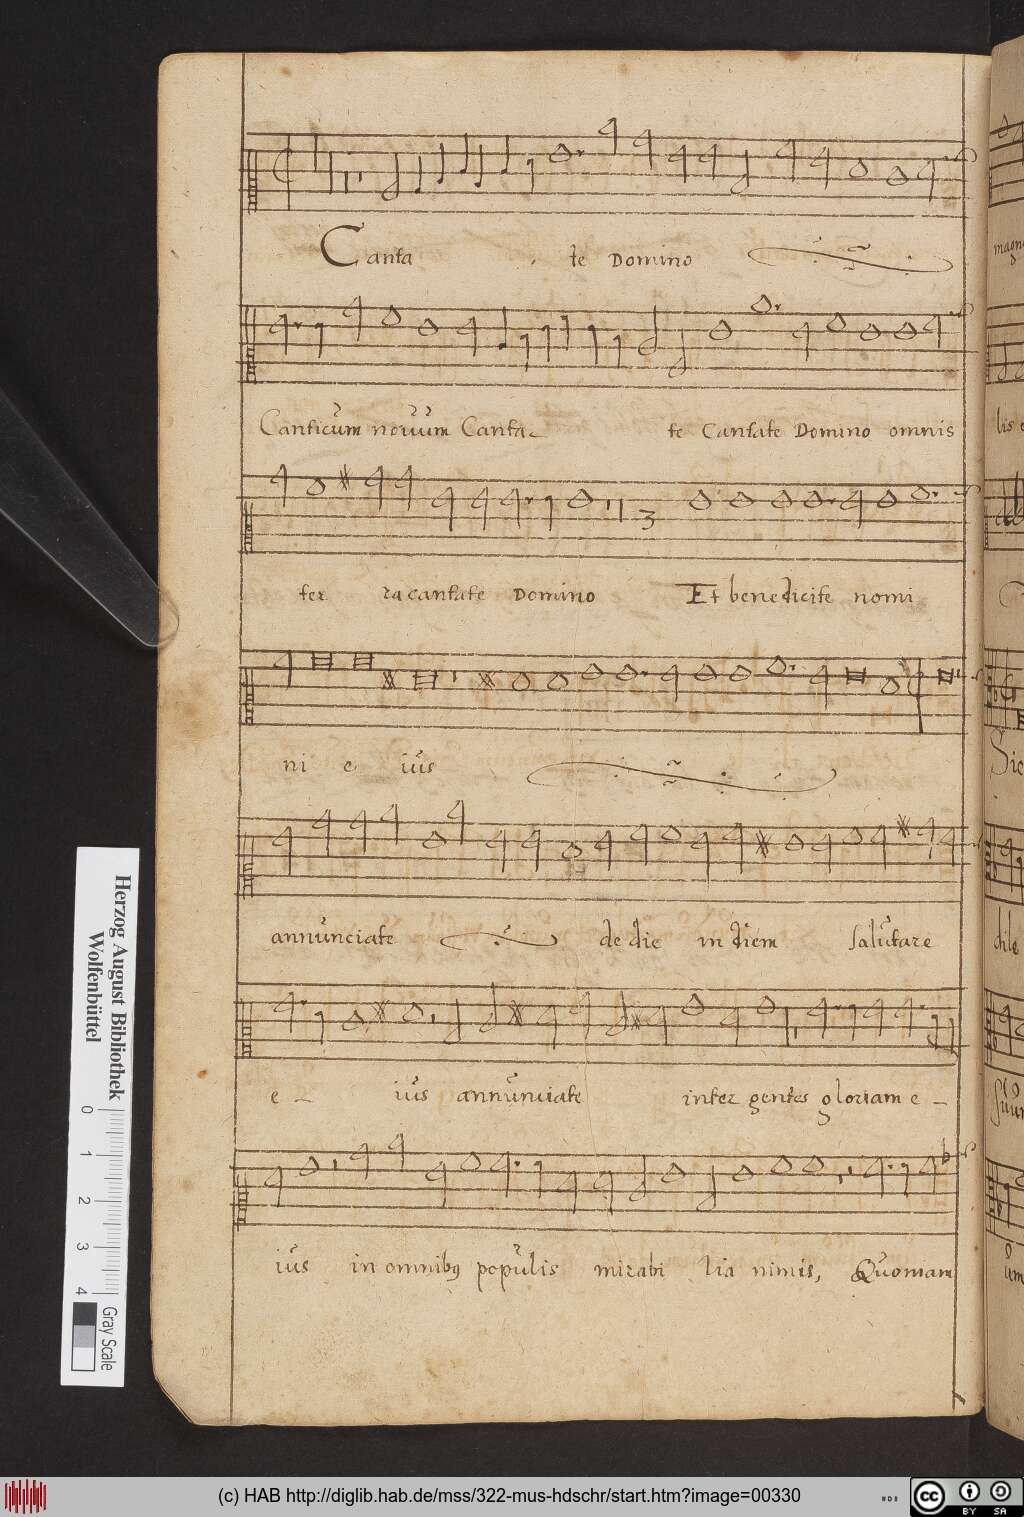 Canta te Domino
Canticum novum Canta te Cantate Domino omnis
ter ra cantate Domino Et benedicite nomi
ni e ius
annunciate de die in diem salutare
e - ius annunciate inter gentes gloriam e -
ius in omnibus populis mirabi lia nimis, Quoniam
magn
lis
Sic
dile
Herzog August Bibliothek
Wolfenbüttel
0 1 2 3 4
Gray Scale
(c) HAB http://diglib.hab.de/mss/322-mus-hdschr/start.htm?image=00330
cc BY SA